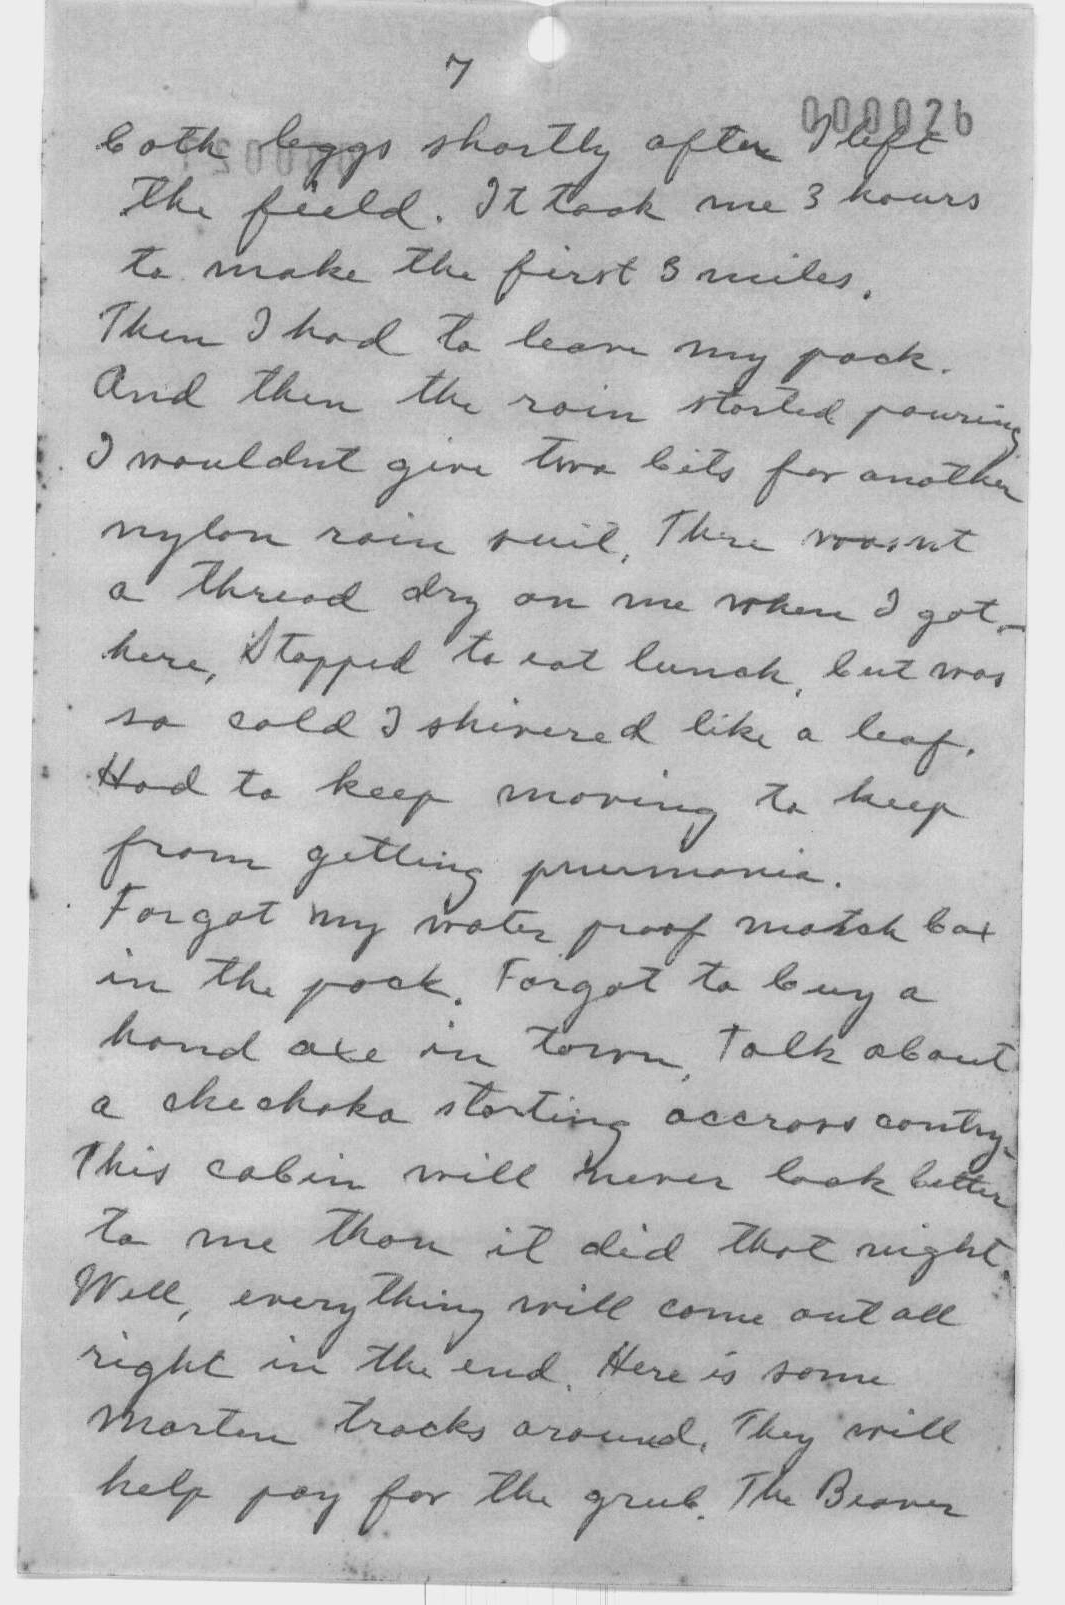 7
000026
both leggs shortly after I left
the field. It took me 3 hours
to make the first 3 miles.
Then I had to leave my pack.
And then the rain started pouring
I wouldnt give two bits for another
nylon rain suit. There wasnt
a thread dry on me when I got
here, Stopped to eat lunch, but was
so cold I shivered like a leaf.
Had to keep moving to keep
from getting pnumonia.
Forgot my water proof match box
in the pack. Forgot to buy a
hand axe in town. Talk about
a chechoko starting accross contry.
This cabin will never look better
to me than it did that night.
Well, everything will come out all
right in the end. Here is some
marten tracks around. They will
help pay for the grub. The Beaver